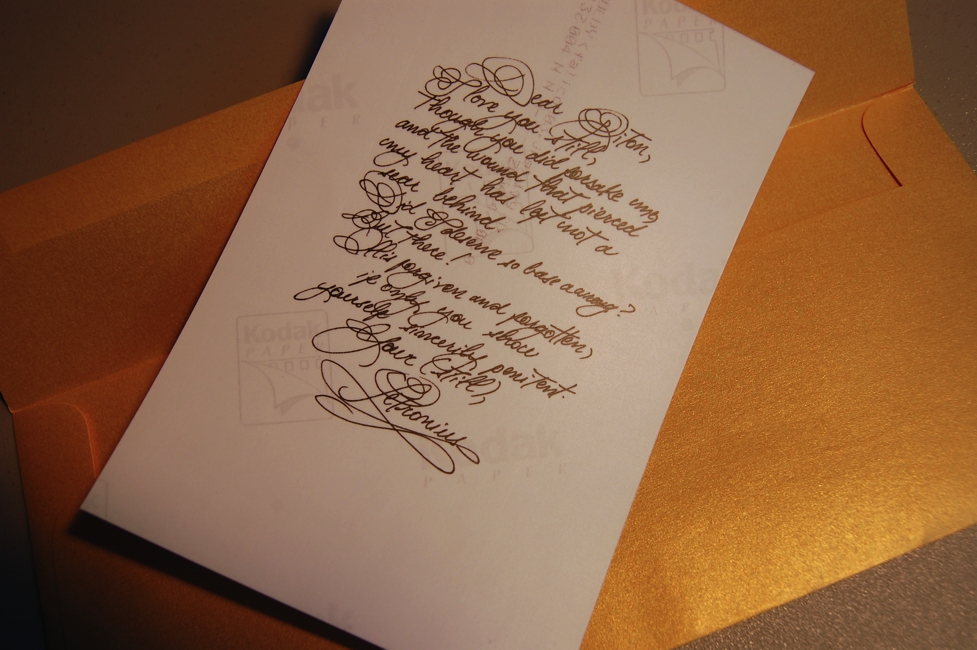 Dear Giton,
I love you still,
though you did forsake me,
and the wound that pierced
my heart has left not a
scar behind.
Did I deserve so base a wrong?
But there!
All is forgiven and forgotten,
if only you show
yourself sincerely penitent.
Your (still),
Petronius
Kodak
PAPER
Kodak
PAPER
Kodak
PAPER
Kodak
PAPER